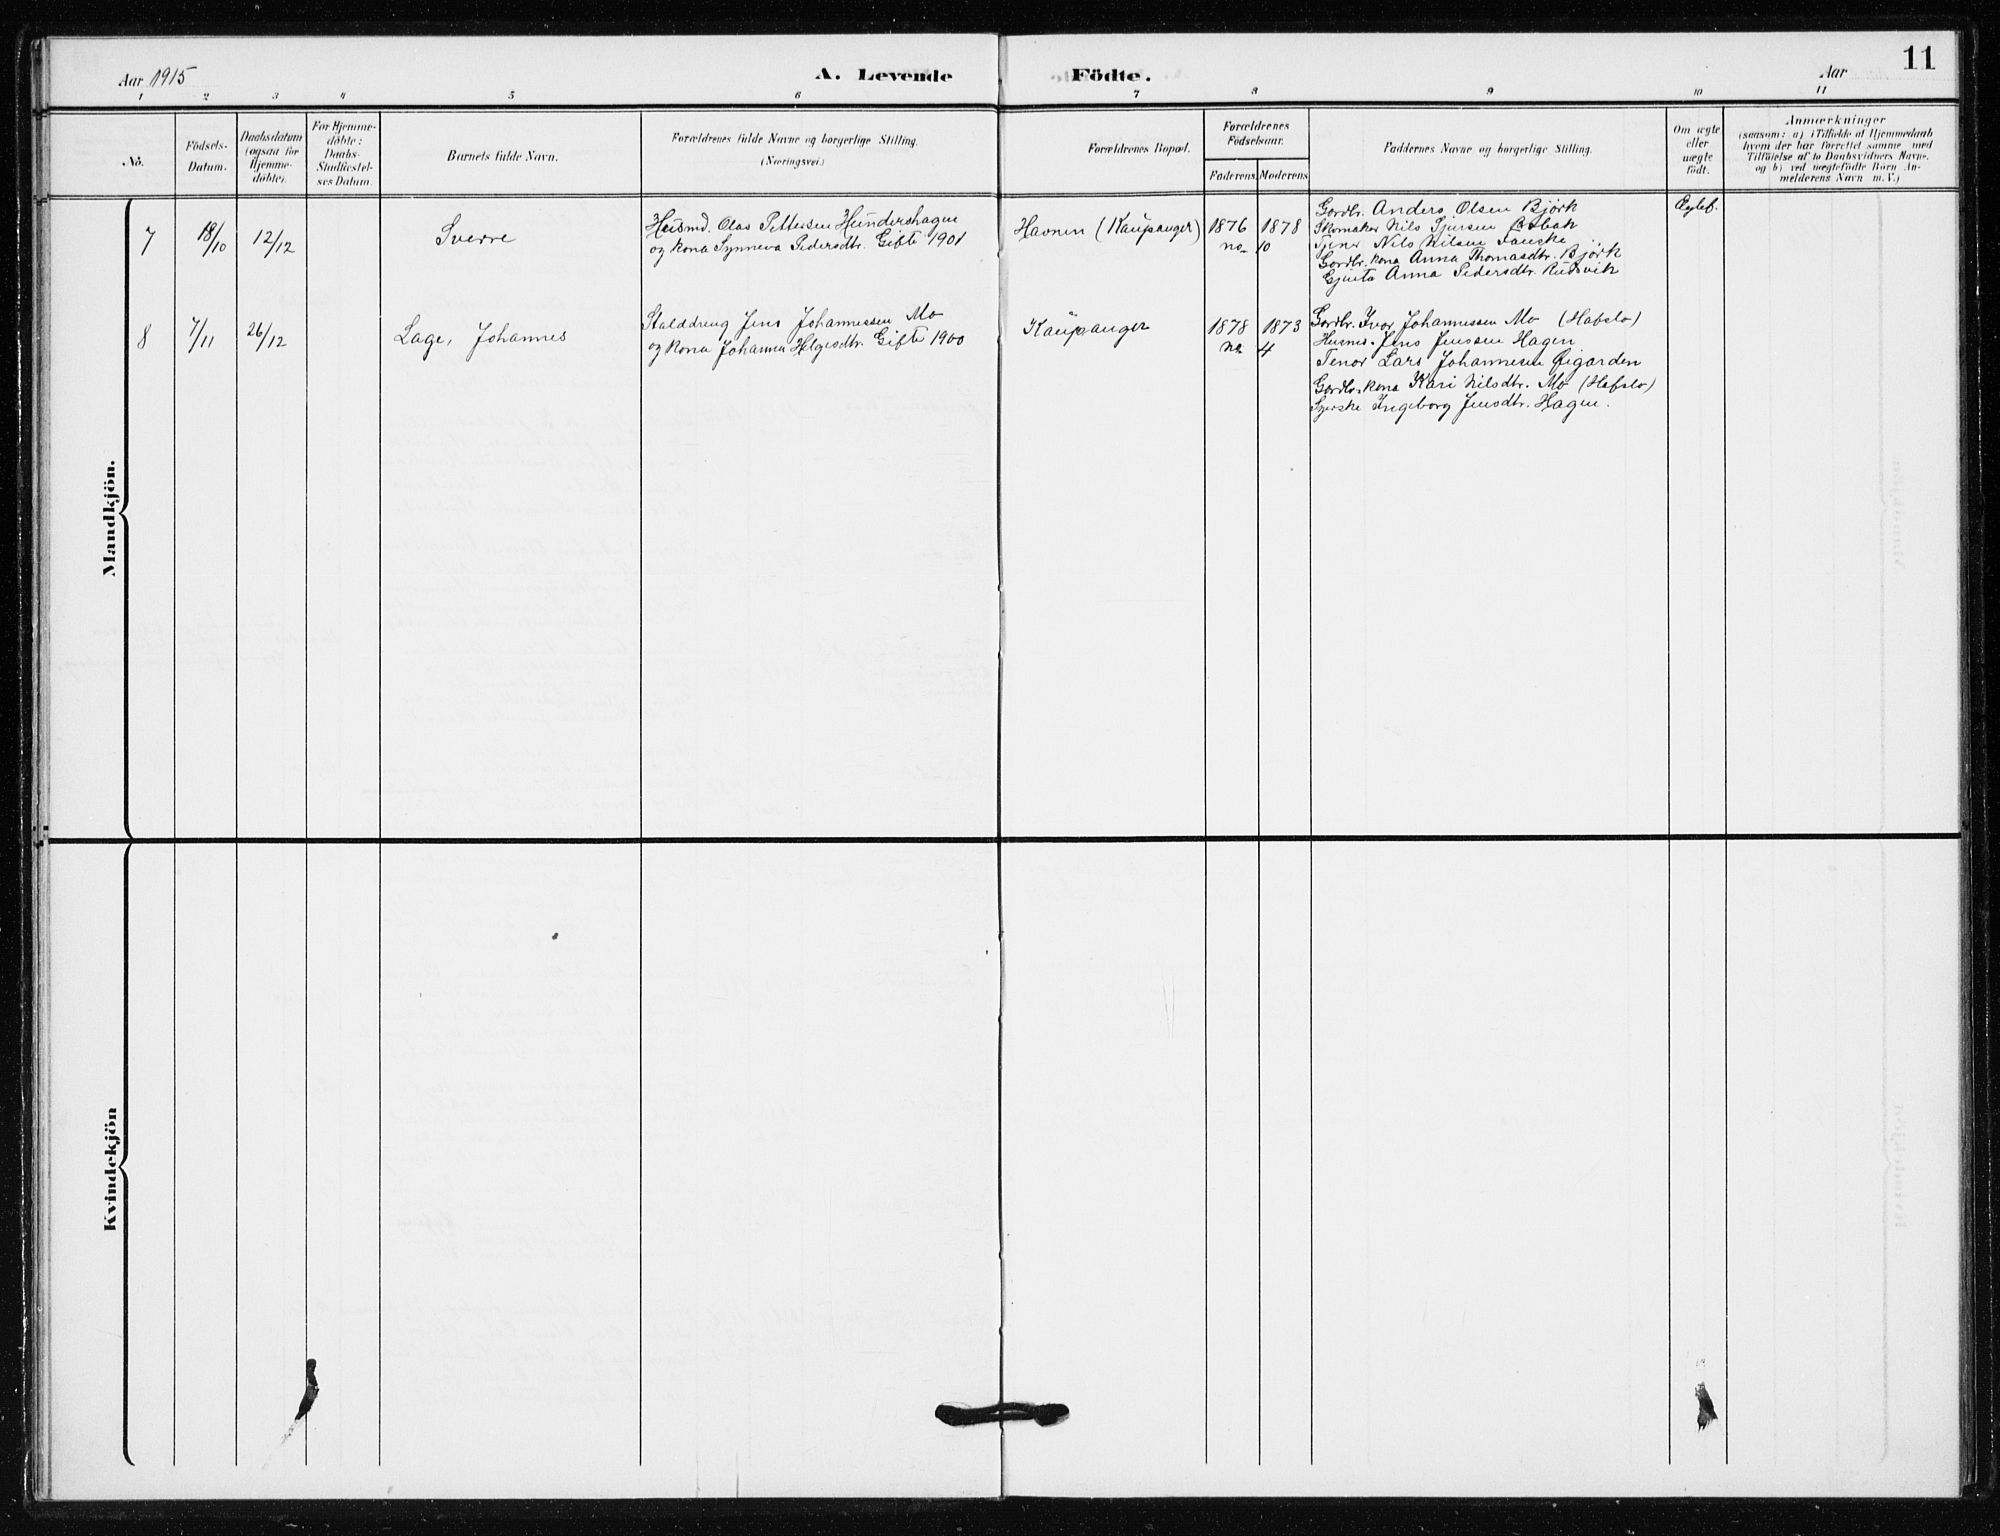 Aar 1915
A. Levende Födte.
Aar
11
1 2 3 4 5 6 7 8 9 10 11
No.
Födsels-
Datum.
Daabsdatum
(ogsaa for
Hjemme-
döbte).
For Hjemme-
döbte:
Daabs-
Stadfæstel-
ses Datum.
Barnets fulde Navn.
Forældrenes fulde Navne og borgerlige Stilling.
(Næringsvei.)
Forældrenes Bopæl.
Forældrenes
Födselsaar.
Faderens. Moderens.
Faddernes Navne og borgerlige Stilling.
Om ægte
eller
uægte
födt.
Anmærkninger
(saasom: a) i Tilfælde af Hjemmedaab
hvem der har forrettet samme med
Tilföielse af to Daabsvidners Navne,
og b) ved uægtefödte Börn An-
melderens Navn m. V.)
Mandkjön.
7
18/10
12/12
Sverre
Heismd. Olas Pettersen Hundershagen
og kona Synneva Pedersdtr. Gifte 1901
Havnen (Kaupanger)
1876 1878
no 10
Gardbr. Anders Olsen Björk
Skomaker Nils
Tjener Nils Nilsen
Gardbr. kona Anna Thomasdtr. Björk
Gjenta Anna Pedersdtr. Rudsvik
Ægtef.
8
7/11
26/12
Lage, Johannes
Stalddreng Jens Johannessen Mo
og kona Johanna Helgesdtr. Gifte 1900
Kaupanger
1878 1873
no 4
Gardbr. Ivar Johannessen Mo (Hafslo)
Husmd. Jens Jenssen Hagen
Tenar Lars Johannesen Øigarden
Gardbr. kona Kari Nilsdtr. Mo (Hafslo)
Ingeborg Jensdtr. Hagen.
Kvindekjön